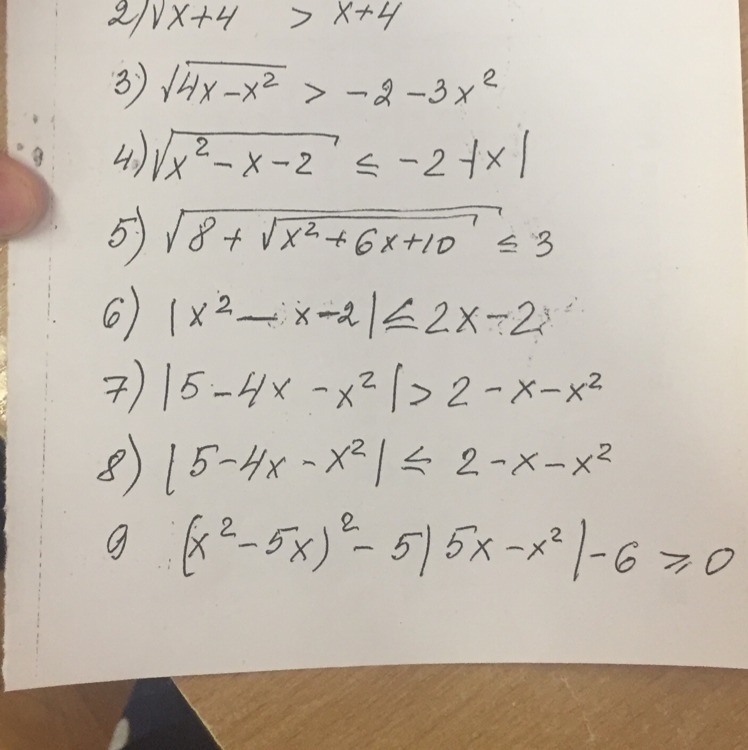 2) √x+4 > x+4
3) √4x-x² > -2-3x²
4) √x²-x-2 ≤ -2-|x|
5) √8+√x²+6x+10 ≤ 3
6) |x²-x-2| ≤ 2x-2
7) |5-4x-x²| > 2-x-x²
8) |5-4x-x²| ≤ 2-x-x²
9 (x²-5x)²-5|5x-x²|-6 ≥ 0